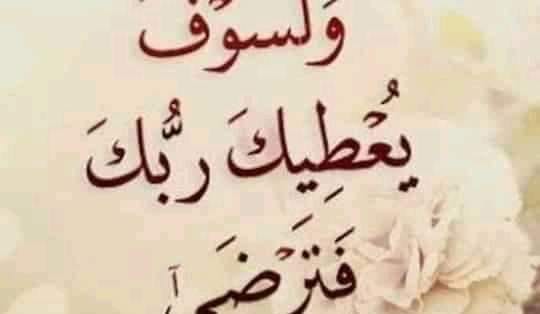 وَلَسَوْفَ
يُعْطِيكَ رَبُّكَ
فَتَرْضَىٰٓ